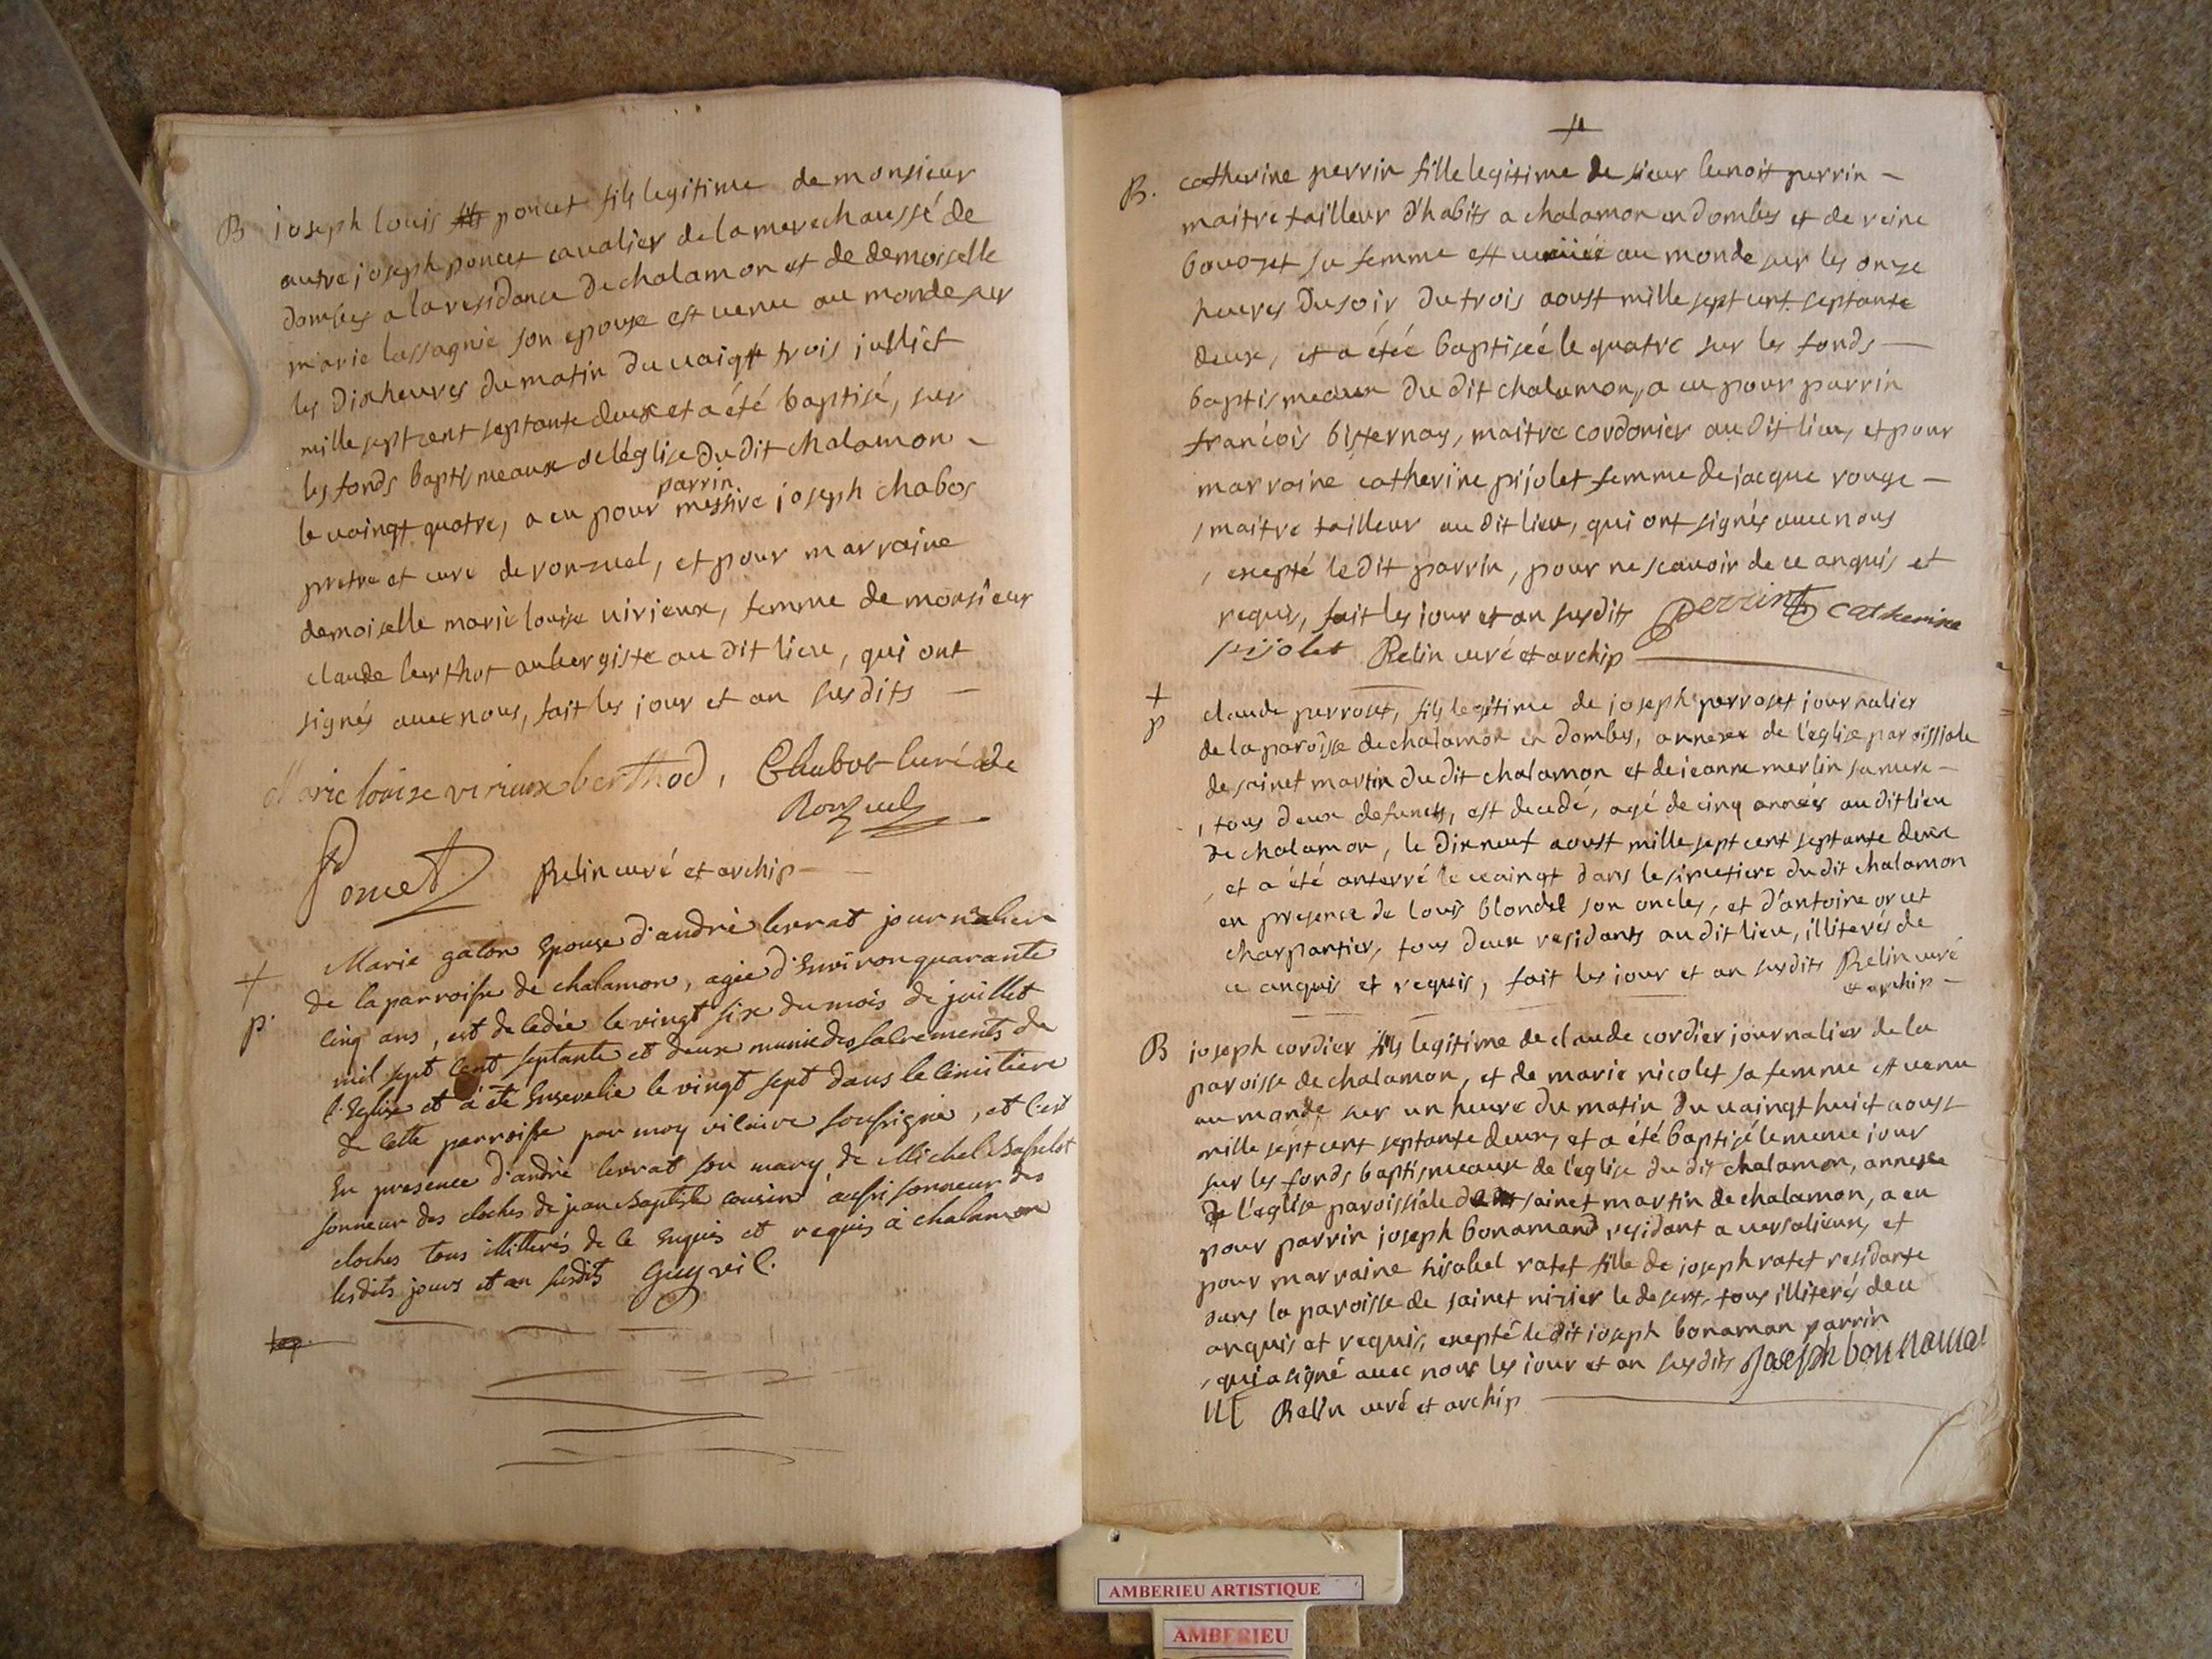 B joseph louis poncet fils legitime de monsieur
autre joseph poncet cavalier de la marechaussé de
dombes a la residance de chalamon et de demoiselle
marie lassagnie son epouse est venu au monde sur
les dix heures du matin du vaingt trois jullict
mille sept cent septante deux et a été baptisé, sur
les fonds baptismeaux de l'église du dit chalamon -
parrin
le vaingt quatre, a eu pour messire joseph chabos
pretre et curé de ronzuel, et pour marraine
demoiselle marie louise virieux, femme de monsieur
claude berthot aubergiste au dit lieu, qui ont
signés avec nous, fait les jour et an susdits -
Marie louise virieux berthod, Chabot curé de
Ronzuel
Poncet Relin curé et archip -
+ Marie galon Epouse d'andré berrat journalier
de la parroisse de chalamon, agée d'Environ quarante
p. cinq ans, est decedée le vingt six du mois de juillet
mil sept cent septante et deux munie des sacrements de
l'Eglise et a été Ensevelie le vingt sept dans le cimitiere
de cette parroisse par moy vicaire soussigné, et c'est
En presence d'andré berrat son mary de Michel
sonneur des cloches de jean Baptiste cousin aussi sonneur des
cloches tous illitterés de ce Enquis et requis à chalamon
lesdits jours et an susdits Guy vic.
B. catherine perrin fille legitime de sieur benoit perrin -
maitre tailleur d'habits a chalamon en dombes et de reine
bovozet sa femme est au monde sur les onze
heures du soir du trois aoust mille sept cent septante
deux, et a étéé baptiséé le quatre sur les fonds -
baptismeaux du dit chalamon, a eu pour parrin
francois bisternay, maitre cordonier au dit lieu, et pour
marraine catherine pijolet femme de jacque rouge -
, maitre tailleur au dit lieu, qui ont signés avec nous
, excepté le dit parrin, pour ne scavoir de ce anquis et
requis, fait les jour et an susdits perrin catherine
pijolet Relin curé et archip
+ claude perroset, fils legitime de joseph perroset journalier
p de la paroîsse de chalamon en dombes, annexe de l'eglise paroissiale
de sainct martin du dit chalamon et de jeanne merlin sa mere -
, tous deux defuncts, est decedé, agé de cinq années au dit lieu
de chalamon, le dixneuf aoust mille sept cent septante deux
, et a été anterré le vaingt dans le simetiere du dit chalamon
en presence de louis blondel son oncles, et d'antoine orcet
charpantier, tous deux residants au dit lieu, illiterés de
ce anquis et requis, fait les jour et an susdits Relin curé
et archip -
B joseph cordier fils legitime de claude cordier journalier de la
paroisse de chalamon, et de marie nicolet sa femme est venu
au monde sur un heure du matin du vaingt huict aoust
mille sept cent septante deux, et a été baptisé le meme jour
sur les fonds baptismeaux de l'eglise du dit chalamon, annexe
de l'eglise paroissiale de sainct martin de chalamon, a eu
pour parrin joseph bonamand residant a versalieux, et
pour marraine hisabel ratet fille de joseph ratet residante
dans la paroisse de sainct nizier le desert, tous illiterés de ce
anquis et requis, excepté le dit joseph bonaman parrin
, qui a signé avec nous les jour et an susdits Joseph bonnamat
Relin curé et archip
AMBERIEU ARTISTIQUE
AMBERIEU